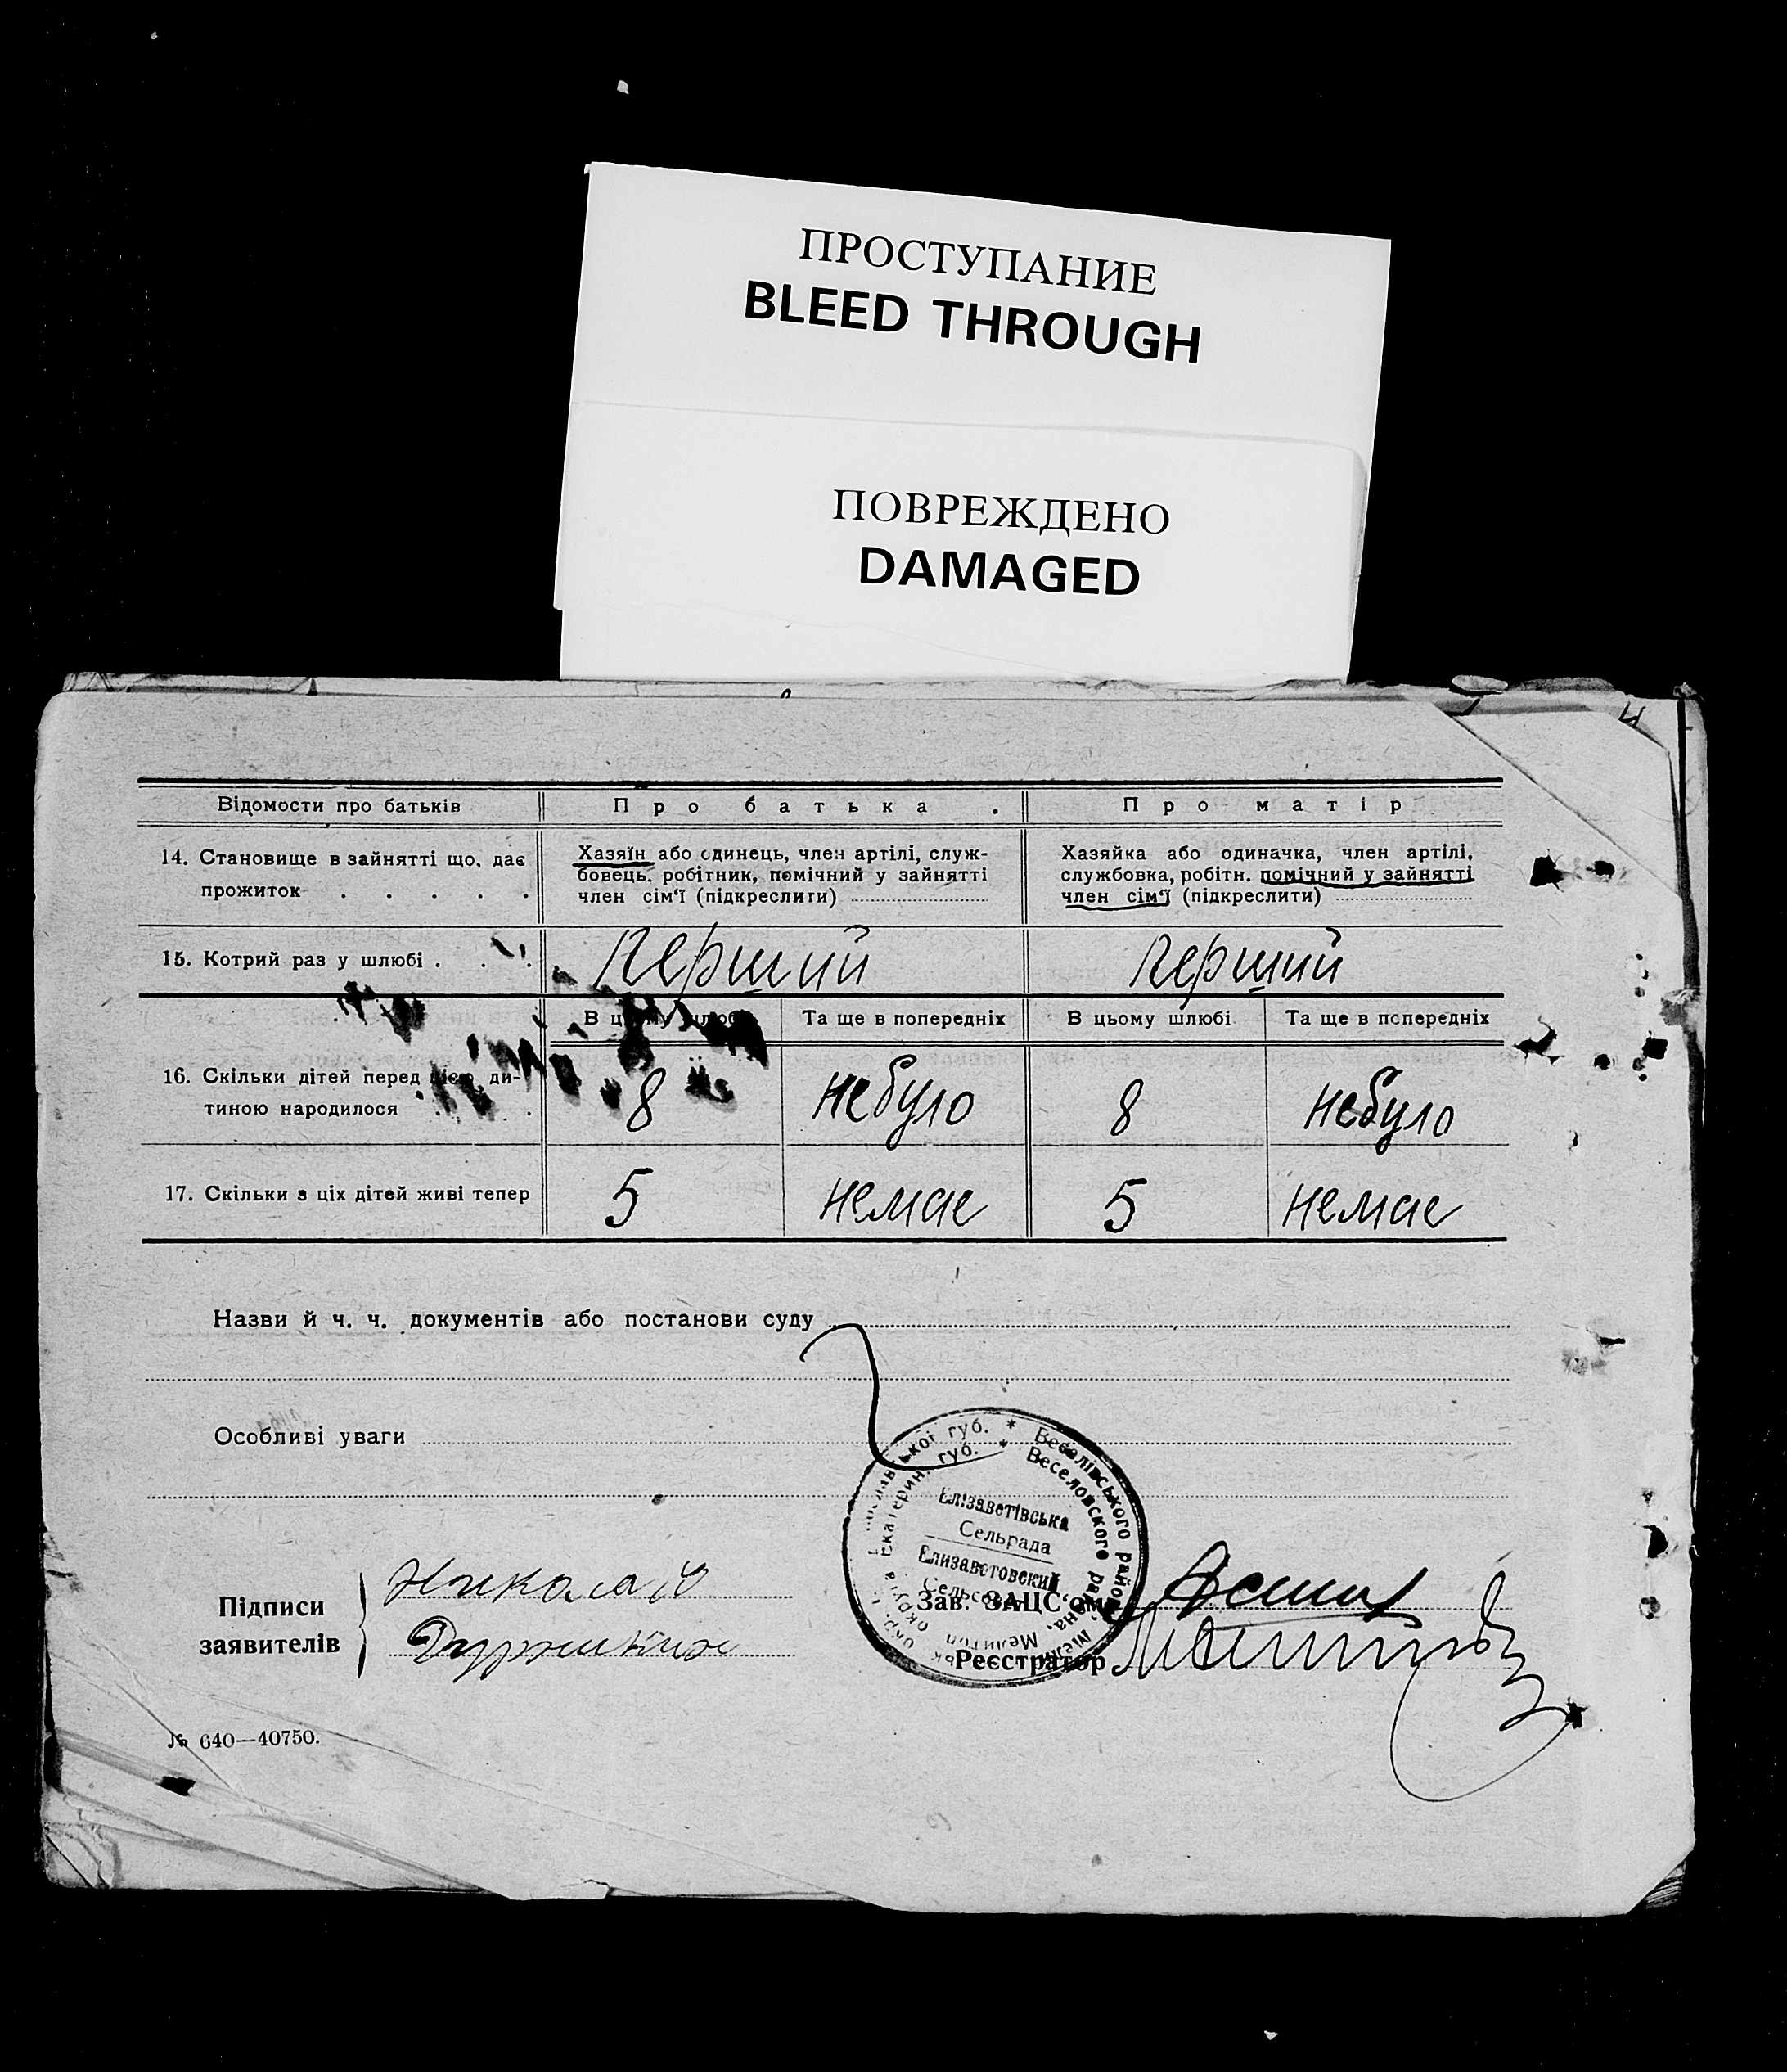 ПРОСТУПАНИЕ
BLEED THROUGH
ПОВРЕЖДЕНО
DAMAGED
Відомости про батьків
Про батька
Про матір
14. Становище в зайнятті що, дає
прожиток
Хазяїн або одинець, член артілі, служ-
бовець. робітник, помічний у зайнятті
член сім'ї (підкреслити)
Хазяйка або одиначка, член артілі,
службовка, робітн. помічний у зайнятті
член сім'ї (підкреслити)
15. Котрий раз у шлюбі
Перший
Перший
В цьому шлюбі
Та ще в попередніх
В цьому шлюбі
Та ще в попередніх
16. Скільки дітей перед цією ди-
тиною народилося
8
небуло
8
небуло
17. Скільки з ціх дітей живі тепер
5
немає
5
немає
Назви й ч. ч. документів або постанови суду
Особливі уваги
губ. * Веселівського район
Екатерин. губ. * Веселовского района, Мелитоп округа
Єлізаветівська
Сельрада
Елизаветовский
Підписи
заявителів
Николай
Зав. ЗАЦС'ом
Реєстратор
№ 640—40750.